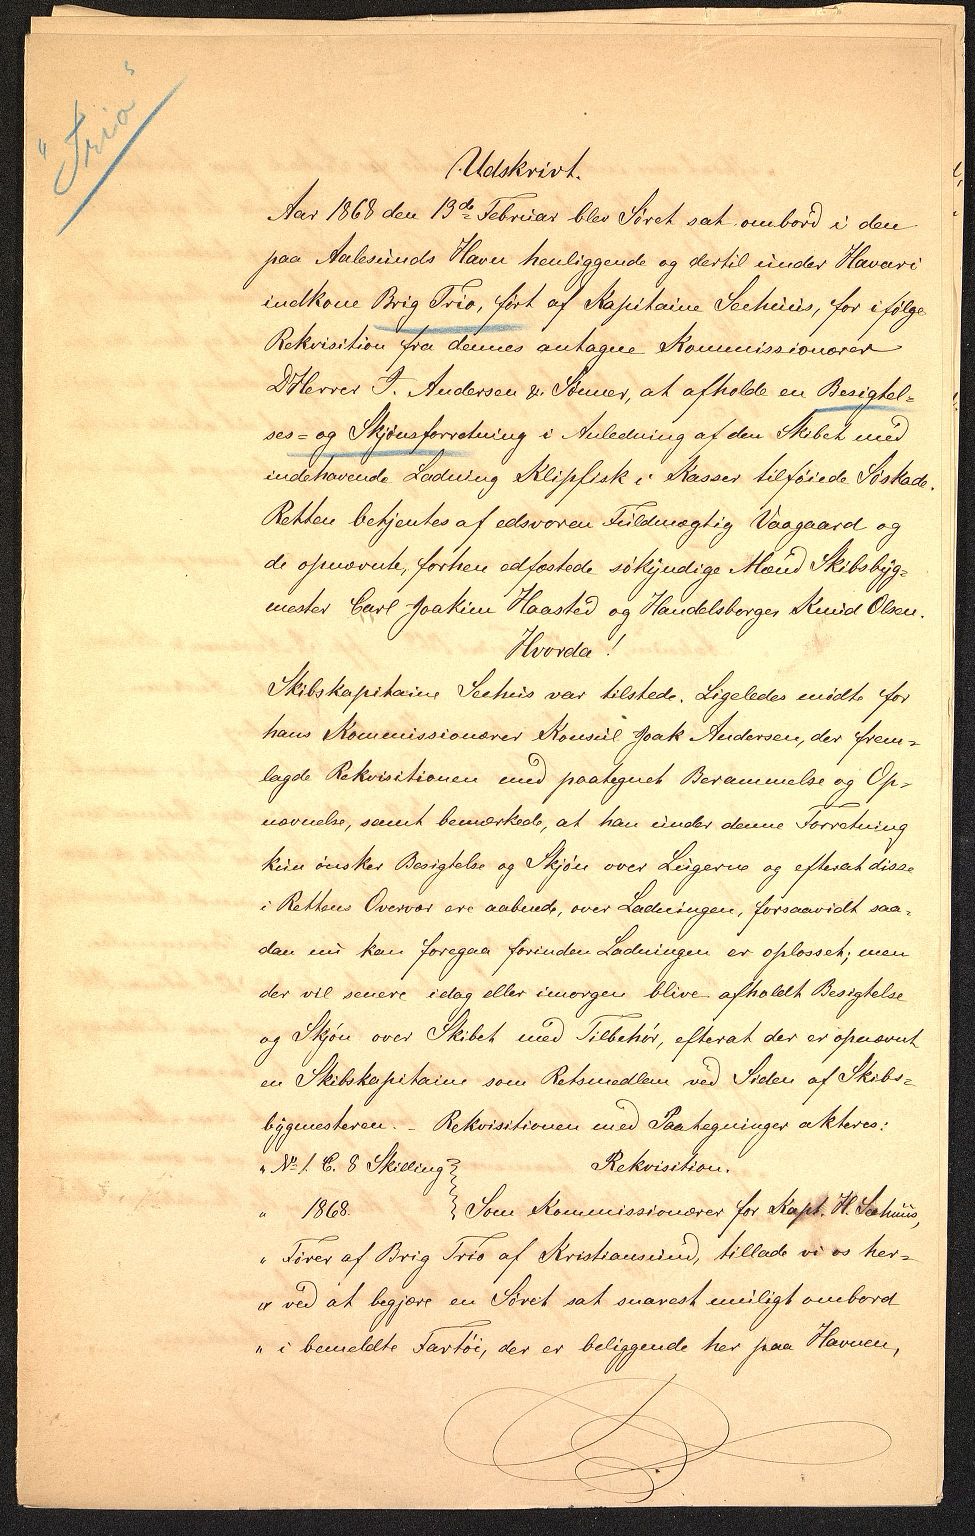 "Trio"
Udskrivt.
Aar 1868 den 13de Februar blev Søret sat ombord i den
paa Aalesunds Havn henliggende og dertil under Havari
indkone Brig Trio, ført af Kapitaine Seehuus, for ifølge
Rekvisition fra dennes antagne Kommissionærer
D'Herrer J. Andersen & Sønner, at afholde en Besigtel=
ses= og Skjønsforretning i Anledning af den Skibet med
indehavende Ladning Klipfisk i Kasser tilføiede Søskade.
Retten betjentes af edsvoren Fuldmægtig Vaagaard og
de opnævnte, forhen edfæstede søkyndige Mænd Skibsbyg=
mester Carl Joakim Haasted og Handelsborger Knud Olsen.
Hvorda!
Skibskapitaine Seehuus var tilstede. Ligeledes mødte for
hans Kommissionærer Konsul Joak Andersen, der frem=
lagde Rekvisitionen med paategnet Berammelse og Op=
nævnelse, samt bemærkede, at han under denne Forretning
kun ønsker Besigtelse og Skjøn over Lugerne og efterat disse
i Rettens Overvær ere aabnede, over Ladningen, forsaavidt saa=
dan nu kan foregaa forinden Ladningen er oplosset; men
der vil senere idag eller imorgen blive afholdt Besigtelse
og Skjøn over Skibet med Tilbehør, efterat der er opnævnt
en Skibskapitaine som Retsmedlem ved Siden af Skibs=
bygmesteren. – Rekvisitionen med Paategninger akteres:
" No 1. C. 8 Skilling Rekvisition.
" 1868. Som Kommissionærer for Kapt. H. Seehuus,
" Fører af Brig Trio af Kristiansund, tillade vi os her=
" ved at begjære en Søret sat snarest muligt ombord
" i bemeldte Fartøi, der er beliggende her paa Havnen,